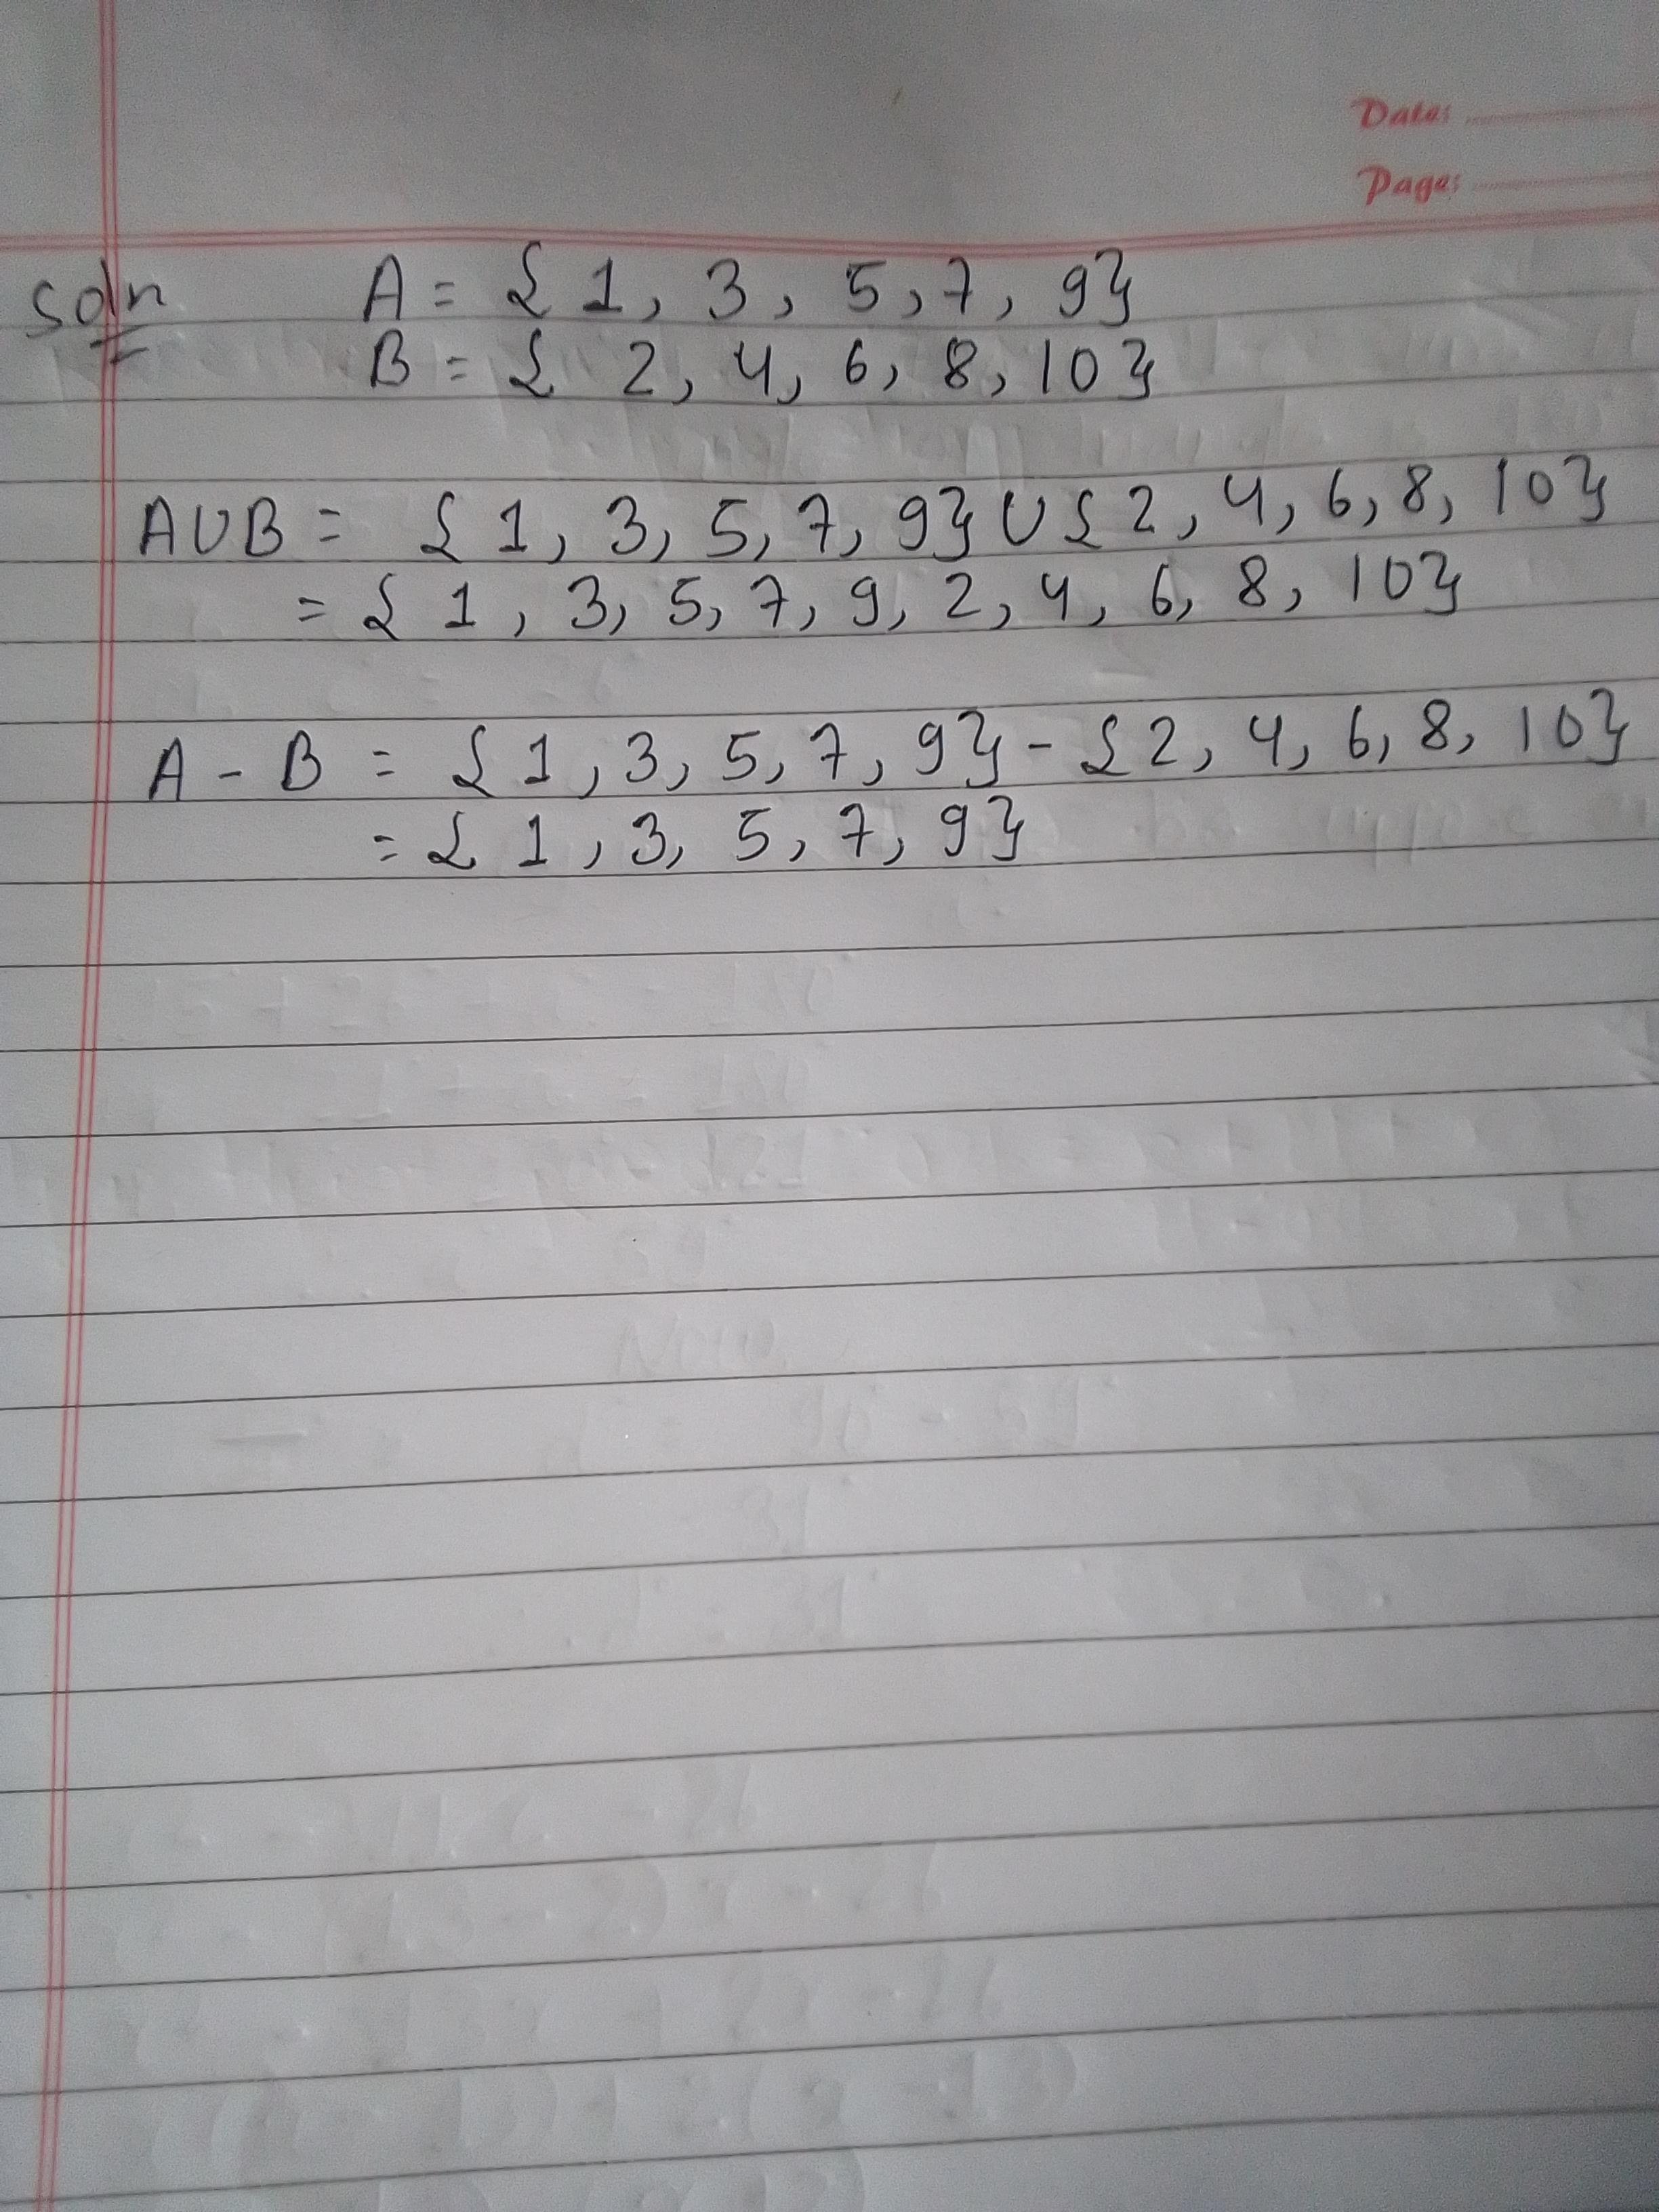 Date:
Page:
Soln A = { 1, 3, 5, 7, 9}
B = { 2, 4, 6, 8, 10}
AUB = { 1, 3, 5, 7, 9} U { 2, 4, 6, 8, 10}
= { 1, 3, 5, 7, 9, 2, 4, 6, 8, 10}
A - B = { 1, 3, 5, 7, 9} - { 2, 4, 6, 8, 10}
= { 1, 3, 5, 7, 9}